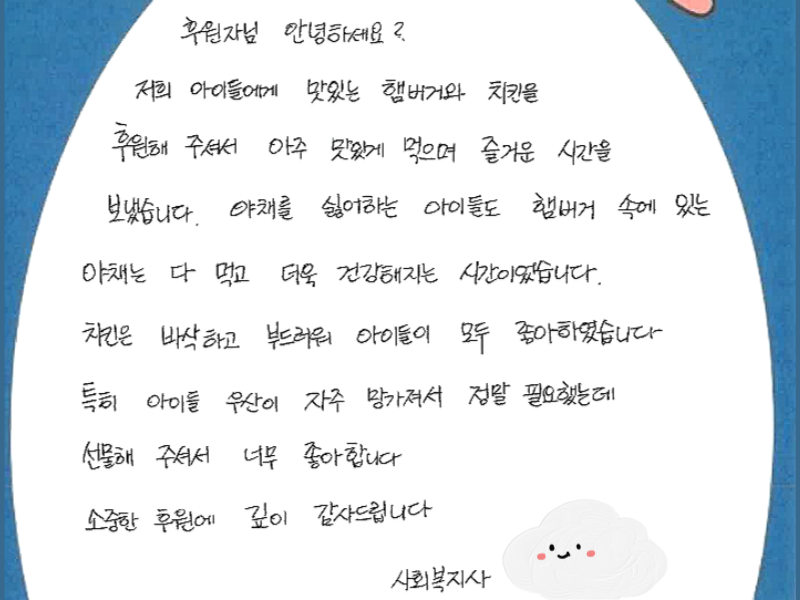 후원자님 안녕하세요?
저희 아이들에게 맛있는 햄버거와 치킨을
후원해 주셔서 아주 맛있게 먹으며 즐거운 시간을
보냈습니다. 야채를 싫어하는 아이들도 햄버거 속에 있는
야채는 다 먹고 더욱 건강해지는 시간이였습니다.
치킨은 바삭하고 부드러워 아이들이 모두 좋아하였습니다
특히 아이들 우산이 자주 망가져서 정말 필요했는데
선물해 주셔서 너무 좋아합니다
소중한 후원에 깊이 감사드립니다
사회복지사